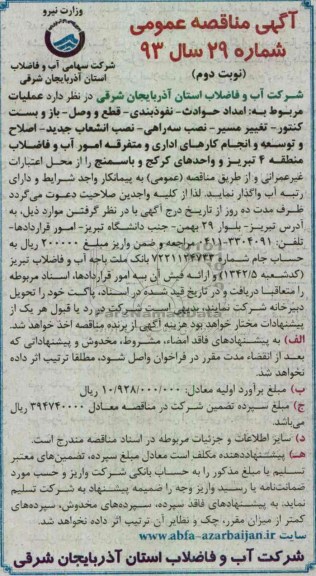 وزارت نیرو
شرکت سهامی آب و فاضلاب
استان آذربایجان شرقی
آگهی مناقصه عمومی
شماره ۲۹ سال ۹۳
(نوبت دوم)
شرکت آب و فاضلاب استان آذربایجان شرقی در نظر دارد عملیات
مربوط به: امداد حوادث- نفوذبندی- قطع و وصل- باز و بست
کنتور- تغییر مسیر- نصب سه‌راهی- نصب انشعاب جدید- اصلاح
و توسعه و انجام کارهای اداری و متفرقه امور آب و فاضلاب
منطقه ۴ تبریز و واحدهای کرکج و باسمنج را از محل اعتبارات
غیرعمرانی و از طریق مناقصه (عمومی) به پیمانکار واجد شرایط و دارای
رتبه آب واگذار نماید. لذا از کلیه واجدین صلاحیت دعوت می‌گردد
ظرف مدت ده روز از تاریخ درج آگهی با در نظر گرفتن موارد ذیل، به
آدرس تبریز- بلوار ۲۹ بهمن- جنب دانشگاه تبریز- امور قراردادها-
تلفن: ۳۳۰۴۰۹۱-۰۴۱۱ مراجعه و ضمن واریز مبلغ ۲۰۰۰۰۰ ریال به
حساب جام شماره ۷۲۲۱۱۲۴۷۳۳ بانک ملت باجه آب و فاضلاب تبریز
(کدشعبه ۱۳۴۲/۵) و ارائه فیش آن به امور قراردادها، اسناد مربوطه
را متعاقبا دریافت و در تاریخ قید شده در اسناد، پاکت خود را تحویل
دبیرخانه شرکت نمایند، بدیهی است شرکت در رد یا قبول هر یک از
پیشنهادات مختار خواهد بود هزینه آگهی از برنده مناقصه اخذ خواهد شد.
الف) به پیشنهادهای فاقد امضاء، مشروط، مخدوش و پیشنهاداتی که
بعد از انقضاء مدت مقرر در فراخوان واصل شود، مطلقا ترتیب اثر داده
نخواهد شد.
ب) مبلغ برآورد اولیه معادل: ۱۰/۹۲۸/۰۰۰/۰۰۰ ریال
ج) مبلغ سپرده تضمین شرکت در مناقصه معادل ۳۹۴۷۴۰۰۰۰ ریال
می‌باشد.
د) سایر اطلاعات و جزئیات مربوطه در اسناد مناقصه مندرج است.
هـ) پیشنهاددهنده مکلف است معادل مبلغ سپرده، تضمین‌های معتبر
تسلیم یا مبلغ مذکور را به حساب بانکی شرکت واریز و حسب مورد
ضمانت‌نامه یا رسید واریز وجه را ضمیمه پیشنهاد به شرکت تسلیم
نماید، به پیشنهادهای فاقد سپرده، سپرده‌های مخدوش، سپرده‌های
کمتر از میزان مقرر، چک و نظایر آن ترتیب اثر داده نخواهد شد.
سایت www.abfa-azarbaijan.ir
شرکت آب و فاضلاب استان آذربایجان شرقی